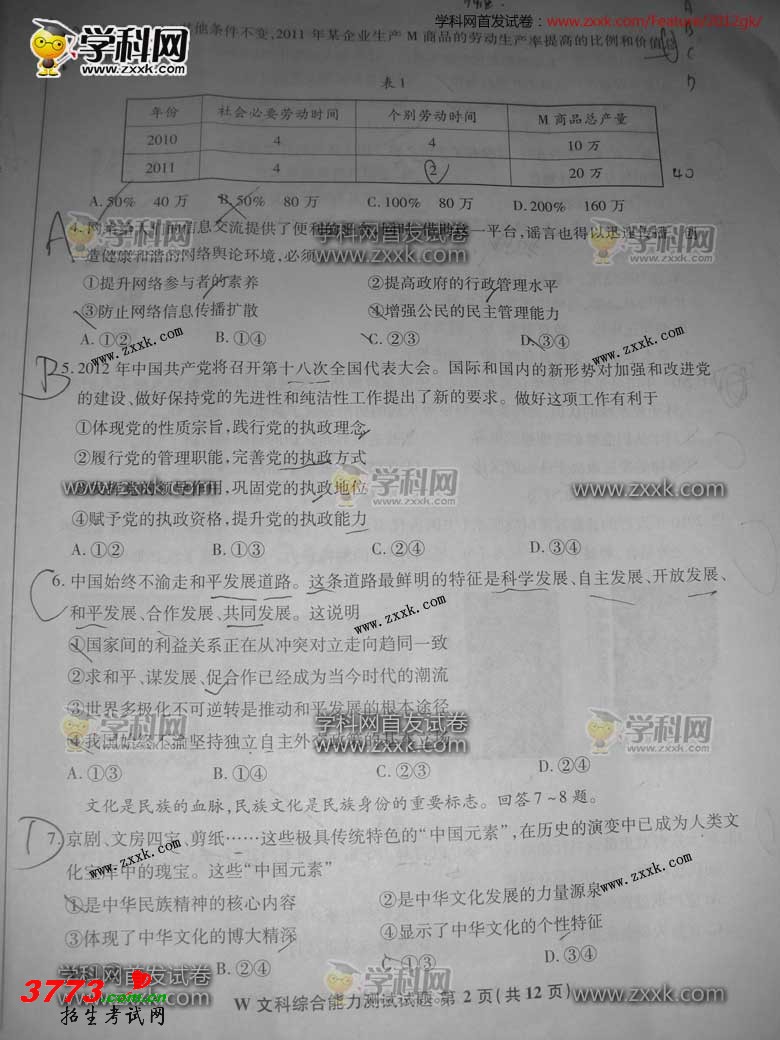 学科网首发试卷：www.zxxk.com/Feature/2012gk/
学科网
ZXXK.COM
其他条件不变,2011 年某企业生产 M 商品的劳动生产率提高的比例和价值
A
B
C
D
表 1
年份 社会必要劳动时间 个别劳动时间 M 商品总产量
2010 4 4 10 万
2011 4 2 20 万
40
A. 50% 40 万 B. 50% 80 万 C. 100% 80 万 D. 200% 160 万
A
4. 的信息交流提供了便利的 一平台,谣言也得以迅速传播。创
造健康和谐的网络舆论环境,必须
学科网
ZXXK.COM
学科网首发试卷
www.zxxk.com
学科网
ZXXK.COM
①提升网络参与者的素养 ②提高政府的行政管理水平
③防止网络信息传播扩散 ④增强公民的民主管理能力
A. ①② B. ①④ C. ②③ D. ③④
www.zxxk.com
www.zxxk.com
B
5. 2012 年中国共产党将召开第十八次全国代表大会。国际和国内的新形势对加强和改进党
的建设、做好保持党的先进性和纯洁性工作提出了新的要求。做好这项工作有利于
①体现党的性质宗旨,践行党的执政理念
②履行党的管理职能,完善党的执政方式
③发挥党的领导作用,巩固党的执政地位
www.zxxk.com
学科网
ZXXK.COM
www.zxxk.com
④赋予党的执政资格,提升党的执政能力
A. ①② B. ①③ C. ②④ D. ③④
C
6. 中国始终不渝走和平发展道路。这条道路最鲜明的特征是科学发展、自主发展、开放发展、
和平发展、合作发展、共同发展。这说明
www.zxxk.com
①国家间的利益关系正在从冲突对立走向趋同一致
②求和平、谋发展、促合作已经成为当今时代的潮流
③世界多极化不可逆转是推动和平发展的根本途径
④我国始终不渝坚持独立自主外交政策的基本立场
学科网
ZXXK.COM
学科网首发试卷
www.zxxk.com
学科网
ZXXK.COM
A. ①③ B. ①④ C. ②③ D. ②④
文化是民族的血脉,民族文化是民族身份的重要标志。回答 7~8 题。
D
7. 京剧、文房四宝、剪纸……这些极具传统特色的“中国元素”,在历史的演变中已成为人类文
化宝库中的瑰宝。这些“中国元素”
www.zxxk.com
www.zxxk.com
①是中华民族精神的核心内容 ②是中华文化发展的力量源泉
③体现了中华文化的博大精深 ④显示了中华文化的个性特征
B. ②④ C. ①③ D. ③④
学科网首发试卷
www.zxxk.com
学科网
ZXXK.COM
www.zxxk.com
W 文科综合能力测试试题 第 2 页(共 12 页)
3773.com.cn
招生考试网